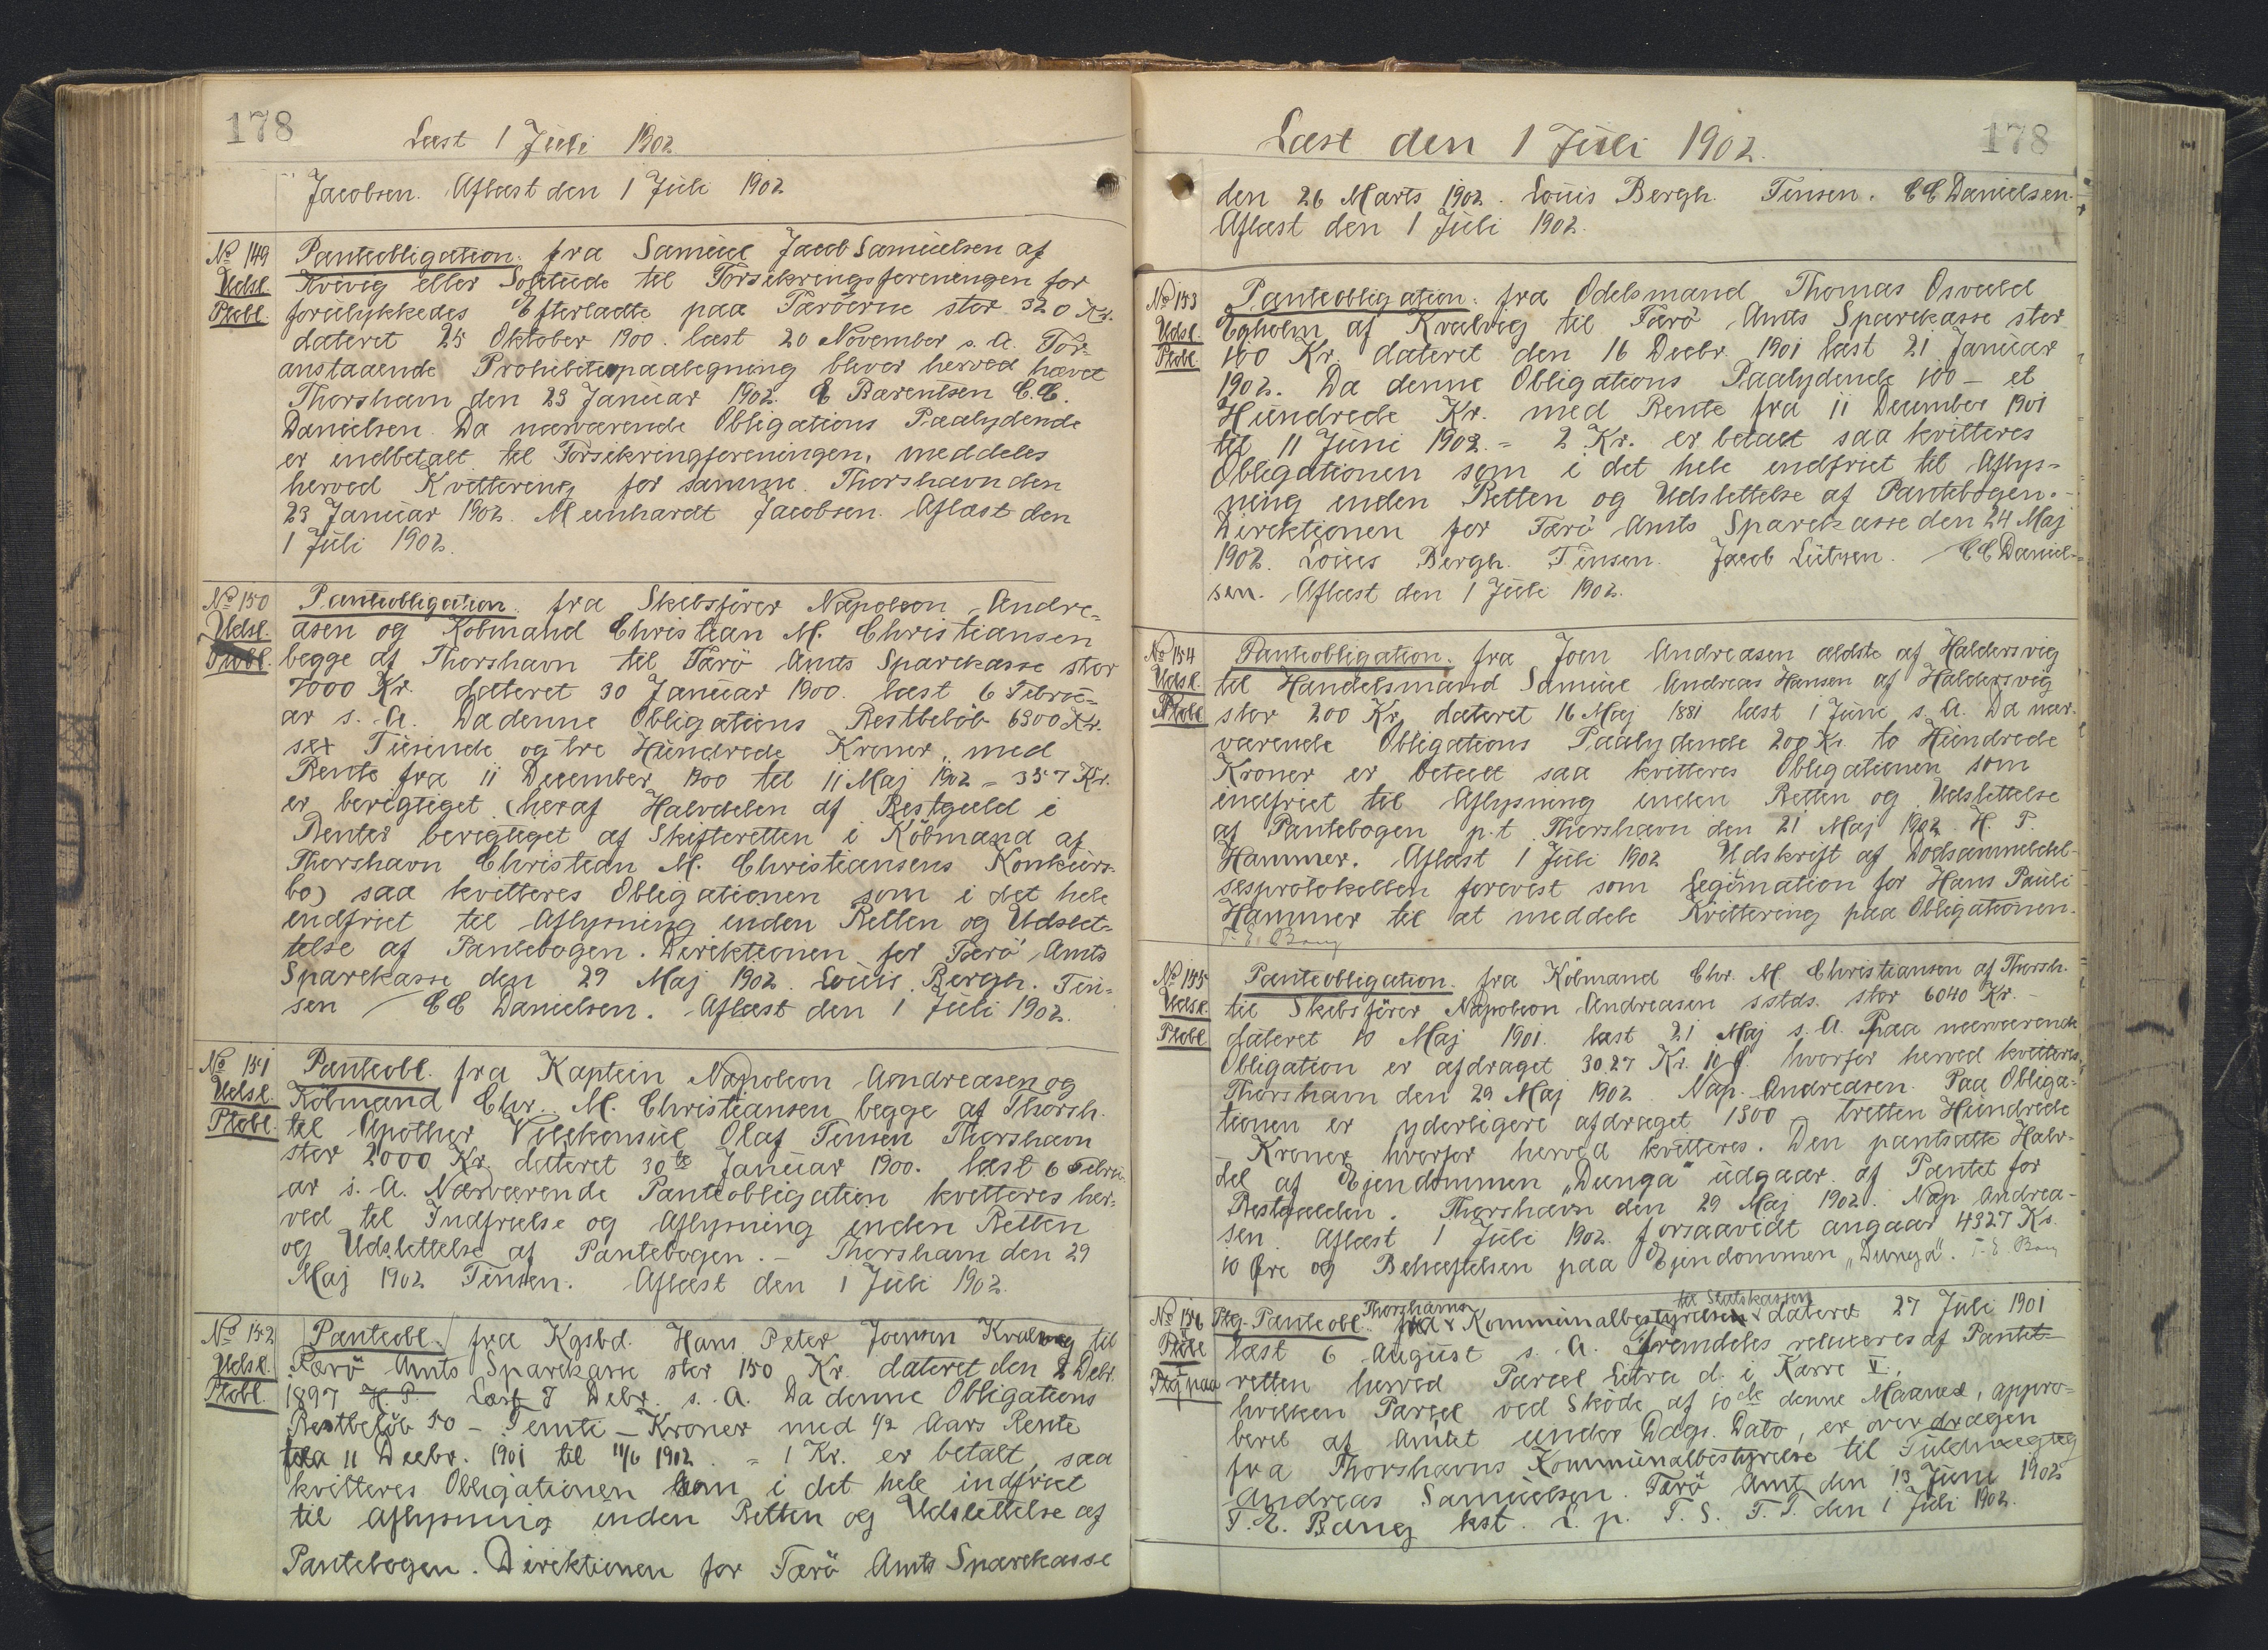 178
Læst 1 Juli 1902
Jacobsen. Aflæst den 1 Juli 1902
No 149
Udsl.
Ptobl.
Panteobligation. fra Samuel Jacob Samuelsen af
Kvivig eller til Forsikringsforeningen for
forulykkedes Efterladte paa Færöerne stor 320 Kr.
dateret 25 Oktober 1900. læst 20 November s. A. For-
anstaaende Prohibitivpaategning bliver herved hævet
Thorshavn den 23 Januar 1902. E Bærentsen C.C.
Danielsen. Da nærværende Obligations Paalydende
er indbetalt til Forsikringforeningen, meddeles
herved Kvittering for samme. Thorshavn den
23 Januar 1902. Meinhardt Jacobsen. Aflæst den
1 Juli 1902.
No 150
Udsl.
Ptobl.
Panteobligation. fra Skibsförer Napoleon Andre-
asen og Köbmand Christian M. Christiansen
begge af Thorshavn til Færö Amts Sparekasse stor
7000 Kr. dateret 30 Januar 1900. læst 6 Febru-
ar s. A. Da denne Obligations Restbelöb 6300 Kr.
sex Tusinde og tre Hundrede Kroner, med
Rente fra 11 December 1900 til 11 Maj 1902 = 357 Kr.
er berigtiget (heraf Halvdelen af Restgæld i
Renter berigtiget af Skifteretten i Köbmand af
Thorshavn Christian M. Christiansens Konkurs-
bo) saa kvitteres Obligationen som i det hele
indfriet til Aflysning inden Retten og Udslet-
telse af Pantebogen. Direktionen for Færö Amts
Sparekasse den 29 Maj 1902. Louis Bergh. Fin-
sen / CC Danielsen. Aflæst den 1 Juli 1902.
No 151
Udsl.
Ptobl.
Panteobl. fra Kaptein Napoleon Aondreasen og
Köbmand Chr. M. Christiansen begge af Thorsh.
til Apother Vicekonsul Olaf Finsen Thorshavn
stor 2000 Kr. dateret 30te Januar 1900. læst 6 Febru-
ar s. A. Nærværende Panteobligation kvitteres her-
ved til Indfrielse og Aflysning inden Retten
og Udslettelse af Pantebogen. – Thorshavn den 29
Maj 1902 Finsen. Aflæst den 1 Juli 1902.
No 152
Udsl.
Ptobl.
Panteobl. fra Kgsbd. Hans Peter Joensen Kvalvig til
Færö Amts Sparekasse stor 150 Kr. dateret den 2 Debr.
1897 H. P. Læst 8 Debr. s. A. Da denne Obligations
Restbelöb 50 – Femti – Kroner med 1/2 Aars Rente
fra 11 Decbr. 1901 til 11/6 1902. = 1 Kr. er betalt, saa
kvitteres Obligationen som i det hele indfriet
til Aflysning inden Retten og Udslettelse af
Pantebogen. Direktionen for Færö Amts Sparekasse
Læst den 1 Juli 1902.
178
den 26 Marts 1902. Louis Bergh. Finsen. CC Danielsen.
Aflæst den 1 Juli 1902.
No 153
Udsl.
Ptobl.
Panteobligation. fra Odelsmand Thomas Osvald
Egholm af Kvalvig til Færö Amts Sparekasse stor
100 Kr. dateret den 16 Decbr. 1901 læst 21 Januar
1902. Da denne Obligations Paalydende 100 – et
Hundrede Kr. med Rente fra 11 December 1901
til 11 Juni 1902. = 2 Kr. er betalt saa kvitteres
Obligationen som i det hele indfriet til Aflys-
ning inden Retten og Udslettelse af Pantebogen. –
Direktionen for Færö Amts Sparekasse den 24 Maj
1902. Louis Bergh. Finsen. Jacob Lützen. CC Daniel-
sen. Aflæst den 1 Juli 1902.
No 154
Udsl.
Ptobl
Panteobligation. fra Joen Andreasen ældste af Haldersvig
til Handelsmand Samuel Andreas Hansen af Haldersvig
stor 200 Kr. dateret 16 Maj 1881 læst 1 Juni s. A. Da nær-
værende Obligations Paalydende 200 Kr. to Hundrede
Kroner er betalt saa kvitteres Obligationen som
indfriet til Aflysning inden Retten og Udslettelse
af Pantebogen p.t. Thorshavn den 21 Maj 1902 H. P.
Hammer. Aflæst 1 Juli 1902 Udskrift af Dödsanmeldel-
sesprotokollen forevist som Legimation for Hans Pauli
Hammer til at meddele Kvittering paa Obligationen.
F. E. Bang
No 155
Udsl.
Ptobl
Panteobligation. fra Köbmand Chr. M. Christiansen af Thorsh.
til Skibsförer Napoleon Andreasen sstds. stor 6040 Kr. –
dateret 10 Maj 1901. læst 21 Maj s. A. Paa nærværende
Obligation er afdraget 3027 Kr. 10 Ø. hvorfor herved kvitteres.
Thorshavn den 29 Maj 1902. Nap. Andreasen. Paa Obliga-
tionen er yderligere afdraget 1300 – tretten Hundrede
– Kroner hvorfor herved kvitteres. Den pantsatte Halv-
del af Ejendommen „Dunga“ udgaar af Pantet for
Restgælden. Thorshavn den 29 Maj 1902. Nap Andrea-
sen. Aflæst 1 Juli 1902. forsaavidt angaar 4327 Kr.
10 Øre og Behæftelsen paa Ejendommen „Dunga“. F. E. Bang
No 156
Ptobl
Ptg paa
Ptg Panteobl. fra Thorshavns Kommunalbestyrelsen til Statskassen dateret 27 Juli 1901
læst 6 August s. A. Fremdeles relaxeres af Pantet-
retten herved Parcel Litra d. i Karre V.,
hvilken Parcel ved Sköde af 10de denne Maaned, appro-
beret af Amtet under Dags Dato, er overdragen
fra Thorshavns Kommunalbestyrelse til Fuldmægtig
Andreas Samuelsen. Færö Amt den 13 Juni 1902
F. E. Bang kst. L. p. T. S. T. T. den 1 Juli 1902.